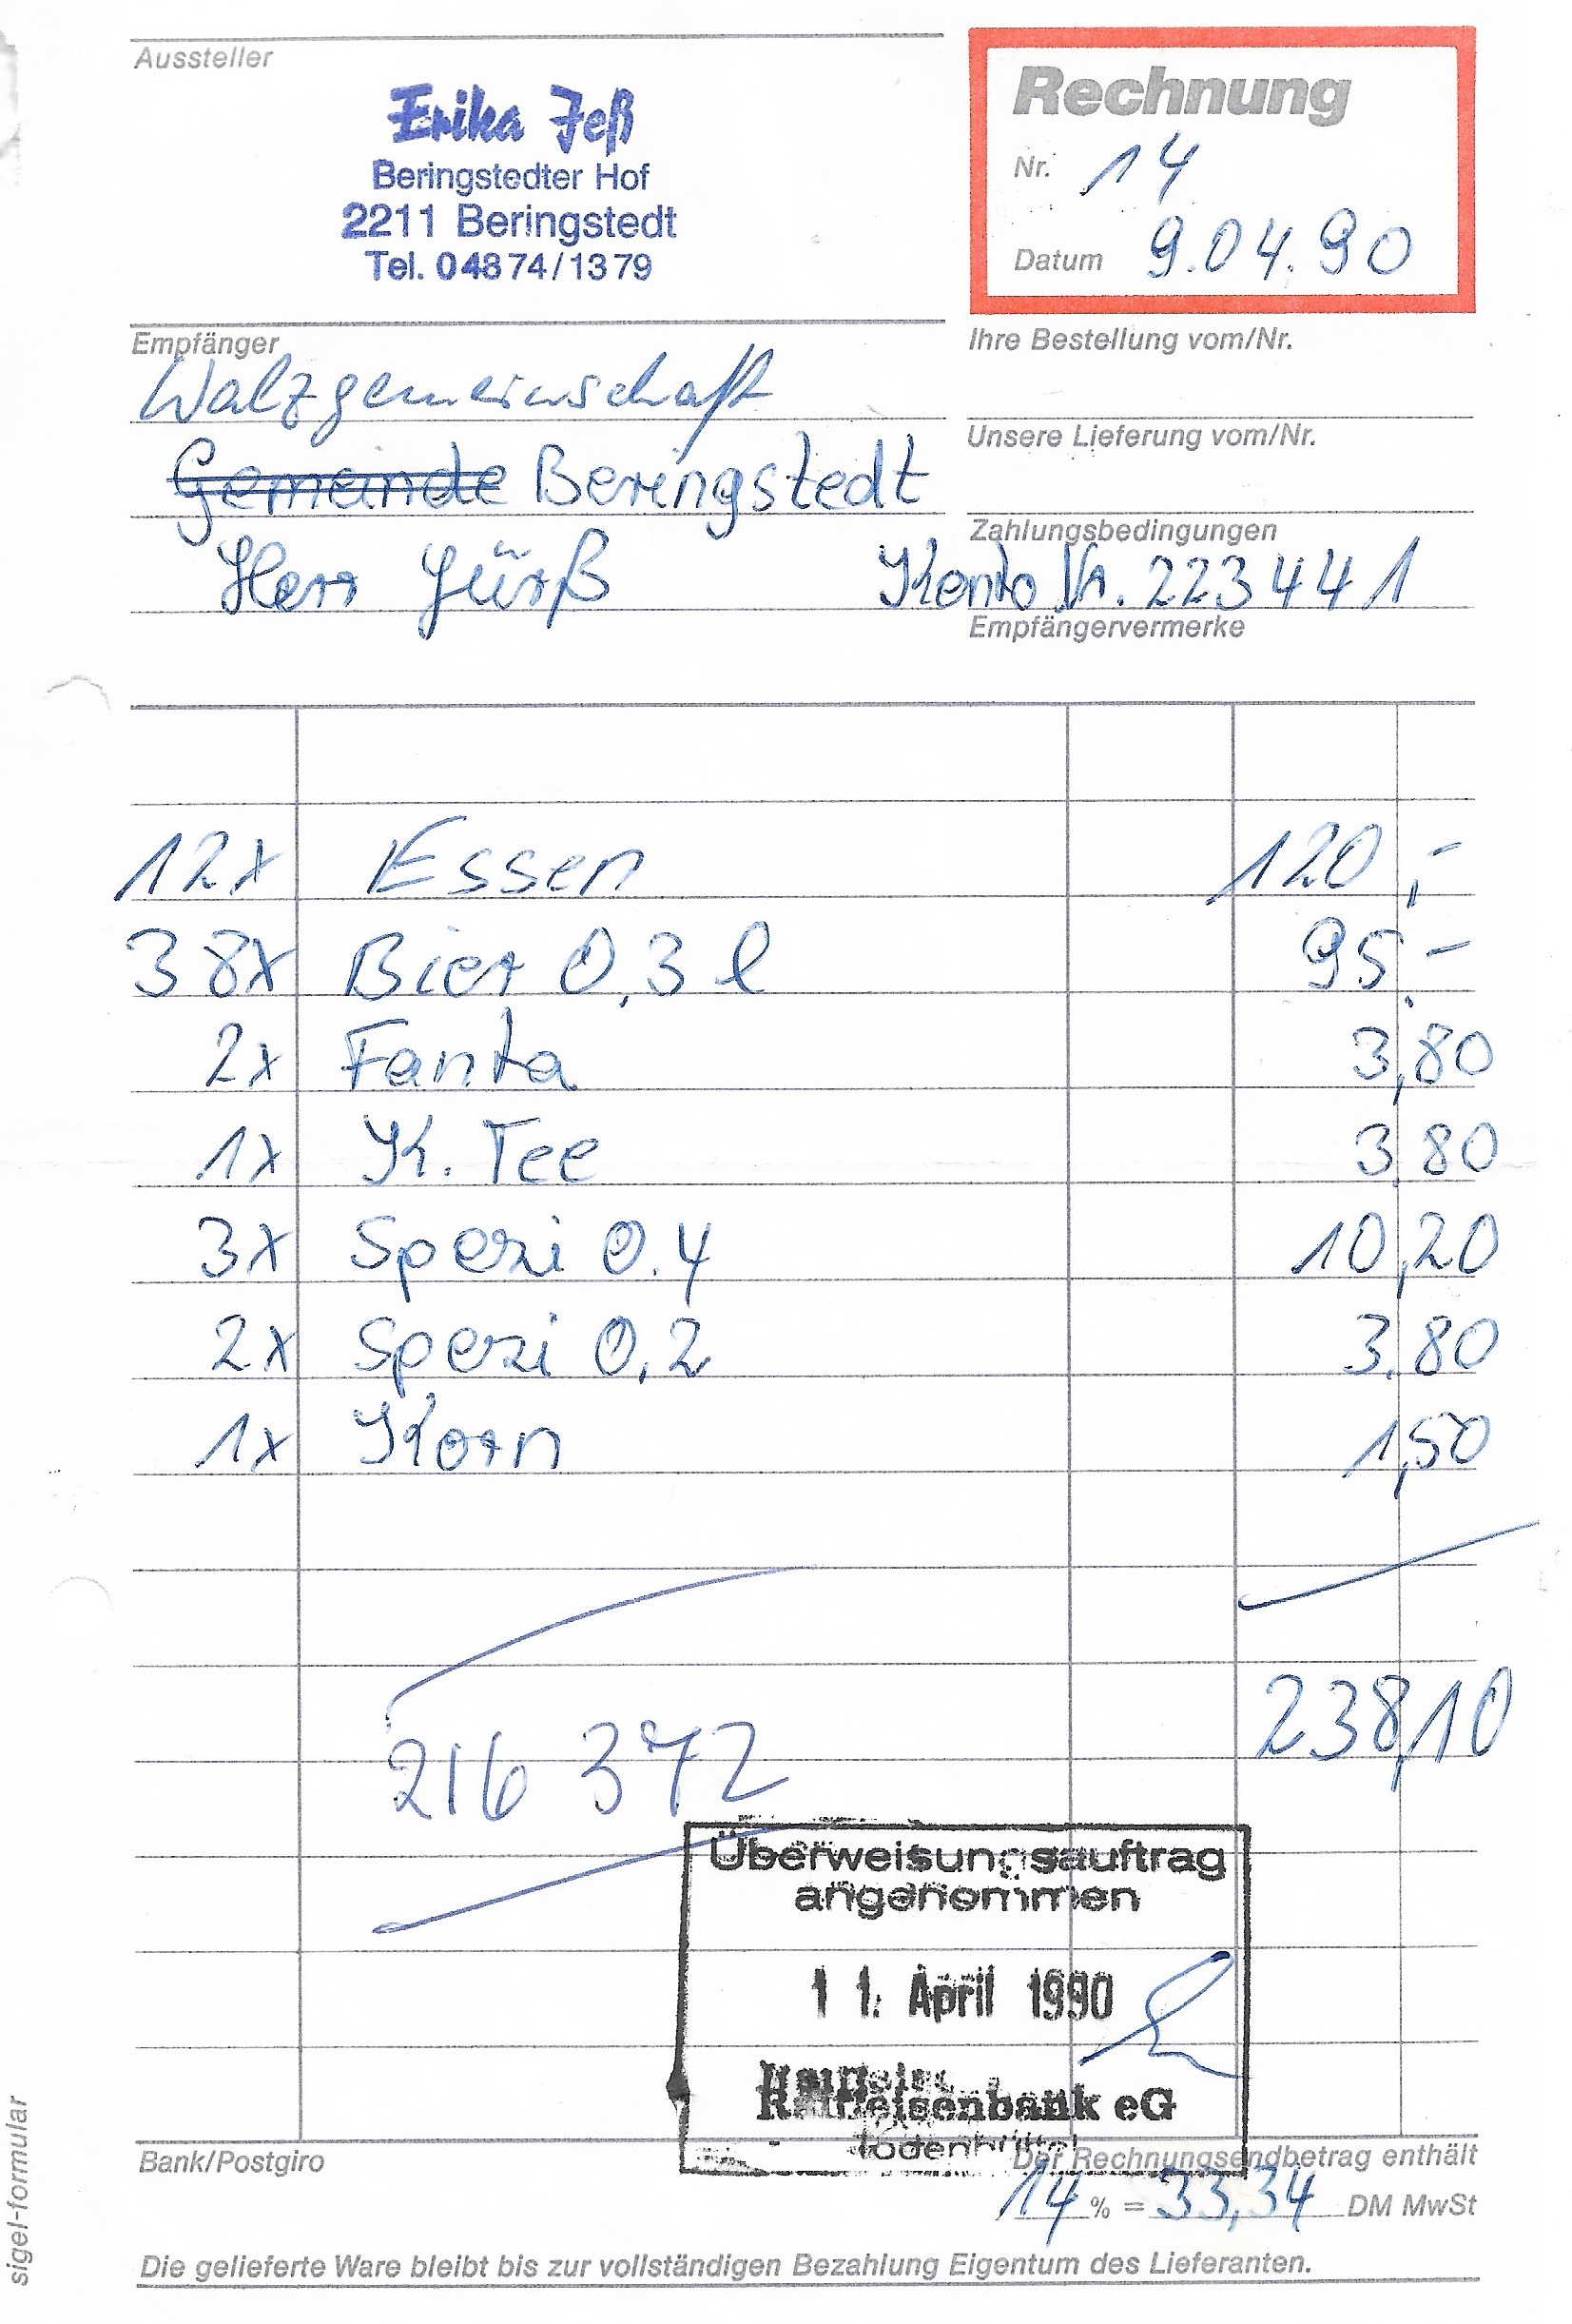 Aussteller
Erika Jeß
Beringstedter Hof
2211 Beringstedt
Tel. 04874/1379
Rechnung
Nr. 14
Datum 9.04.90
Empfänger
Walzgemeinschaft
Gemeinde Beringstedt
Herr Jürß
Ihre Bestellung vom/Nr.
Unsere Lieferung vom/Nr.
Zahlungsbedingungen
Konto Nr. 223441
Empfängervermerke
12x Essen 120,-
38x Bier 0,3 l 95.-
2x Fanta 3,80
1x K. Tee 3.80
3x Spezi 0.4 10,20
2x Spezi 0,2 3.80
1x Korn 1,50
238,10
216 372
Überweisungsauftrag
angenommen
11. April 1990
Raiffeisenbank eG
Todenbüttel
Bank/Postgiro
Der Rechnungsendbetrag enthält
14 % = 33,34 DM MwSt
Die gelieferte Ware bleibt bis zur vollständigen Bezahlung Eigentum des Lieferanten.
sigel-formular